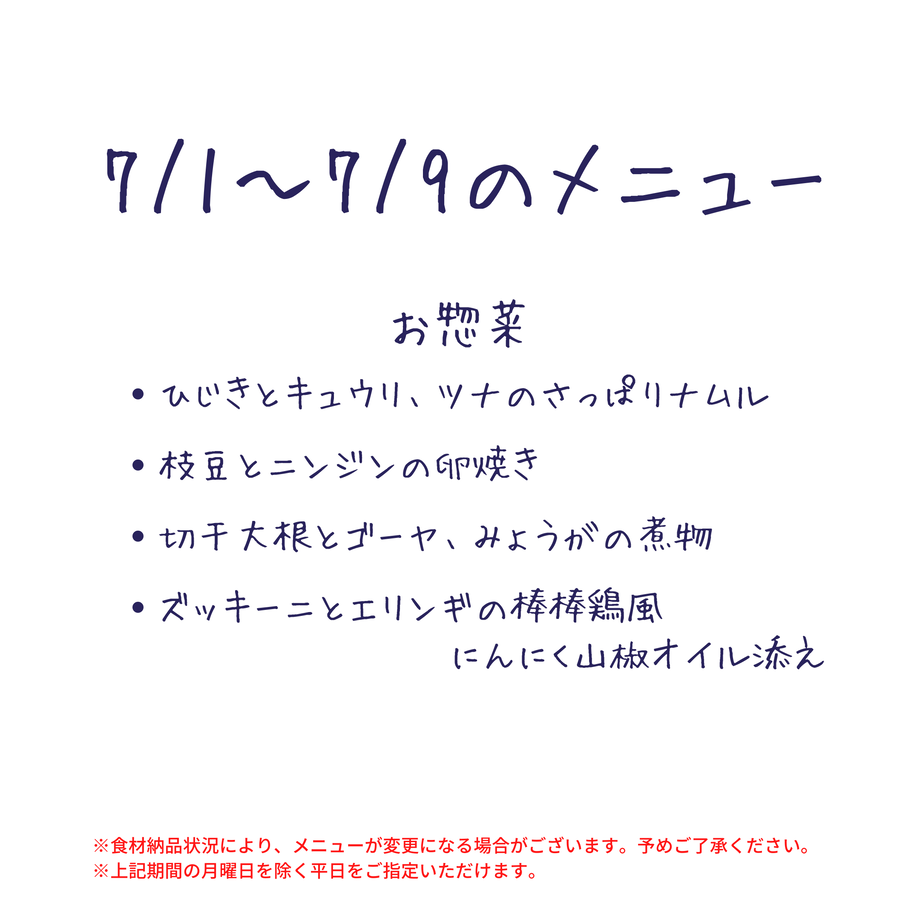 7/1〜7/9のメニュー
お惣菜
• ひじきとキュウリ、ツナのさっぱりナムル
• 枝豆とニンジンの卵焼き
• 切干大根とゴーヤ、みょうがの煮物
• ズッキーニとエリンギの棒棒鶏風
にんにく山椒オイル添え
※食材納品状況により、メニューが変更になる場合がございます。予めご了承ください。
※上記期間の月曜日を除く平日をご指定いただけます。